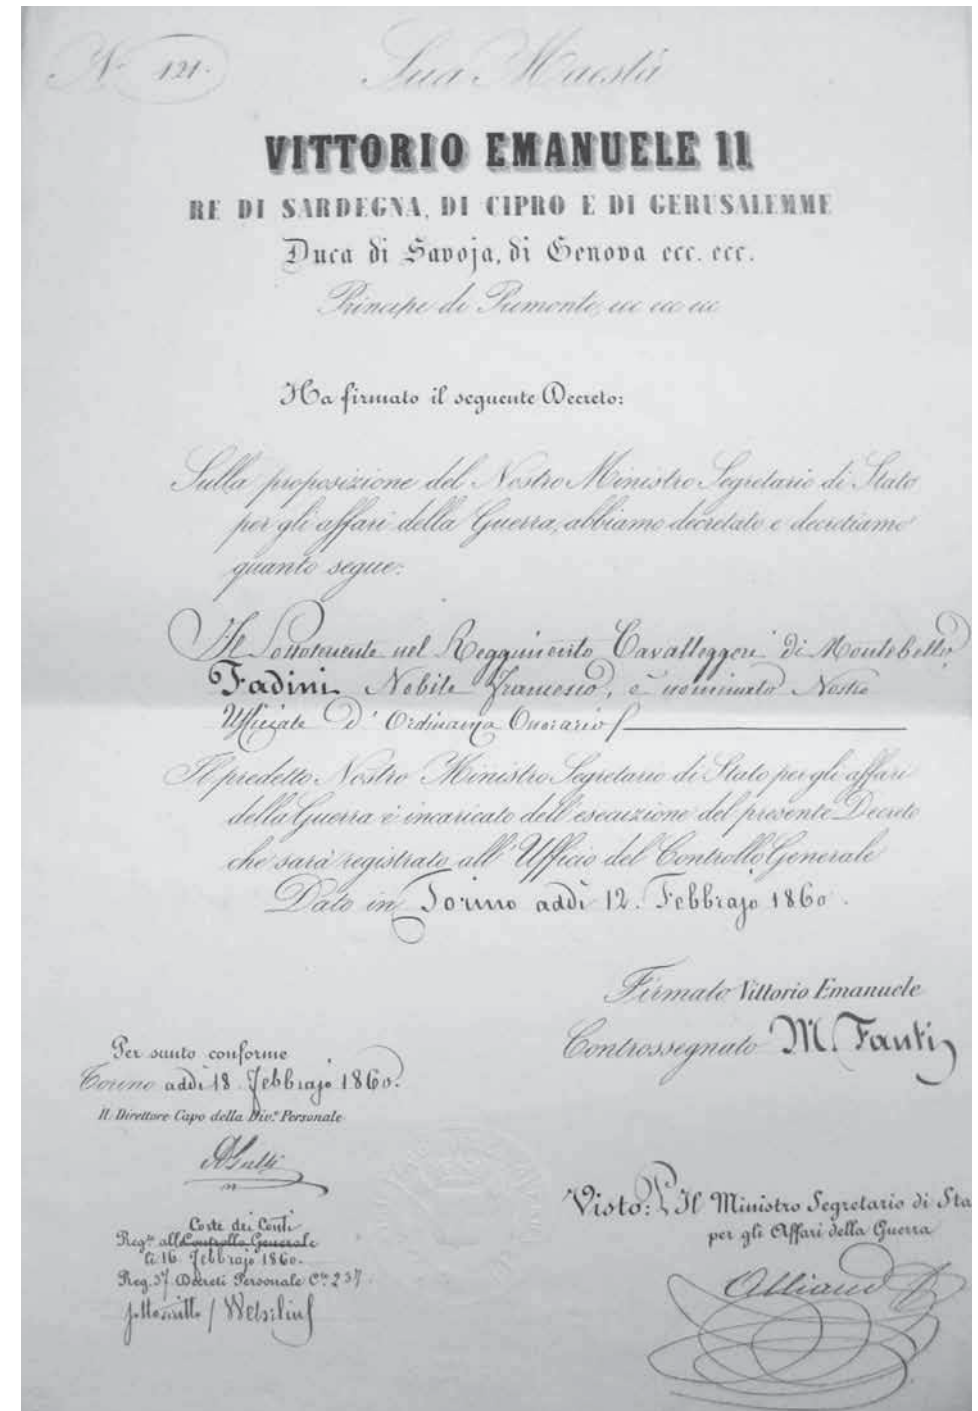 N. 121.
Sua Maestà
VITTORIO EMANUELE II
RE DI SARDEGNA, DI CIPRO E DI GERUSALEMME
Duca di Savoja, di Genova ecc. ecc.
Principe di Piemonte, ecc ecc ecc
Ha firmato il seguente Decreto:
Sulla proposizione del Nostro Ministro Segretario di Stato
per gli affari della Guerra, abbiamo decretato e decretiamo
quanto segue:
Il Sottotenente nel Reggimento Cavalleggeri di Montebello
Fadini Nobile Francesco, è nominato Nostro
Ufficiale D'Ordinanza Onorario
Il predetto Nostro Ministro Segretario di Stato per gli affari
della Guerra è incaricato dell'esecuzione del presente Decreto
che sarà registrato all'Ufficio del Controllo Generale
Dato in Torino addì 12. Febbrajo 1860.
Firmato Vittorio Emanuele
Controssegnato M. Fanti
Per sunto conforme
Torino addì 18 Febbrajo 1860.
Il Direttore Capo della Div.e Personale
Visto: Il Ministro Segretario di Sta
per gli Affari della Guerra
Corte dei Conti
Reg.to all Controllo Generale
li 16 Febbrajo 1860.
Reg. 37 Decreti Personale C.te 237